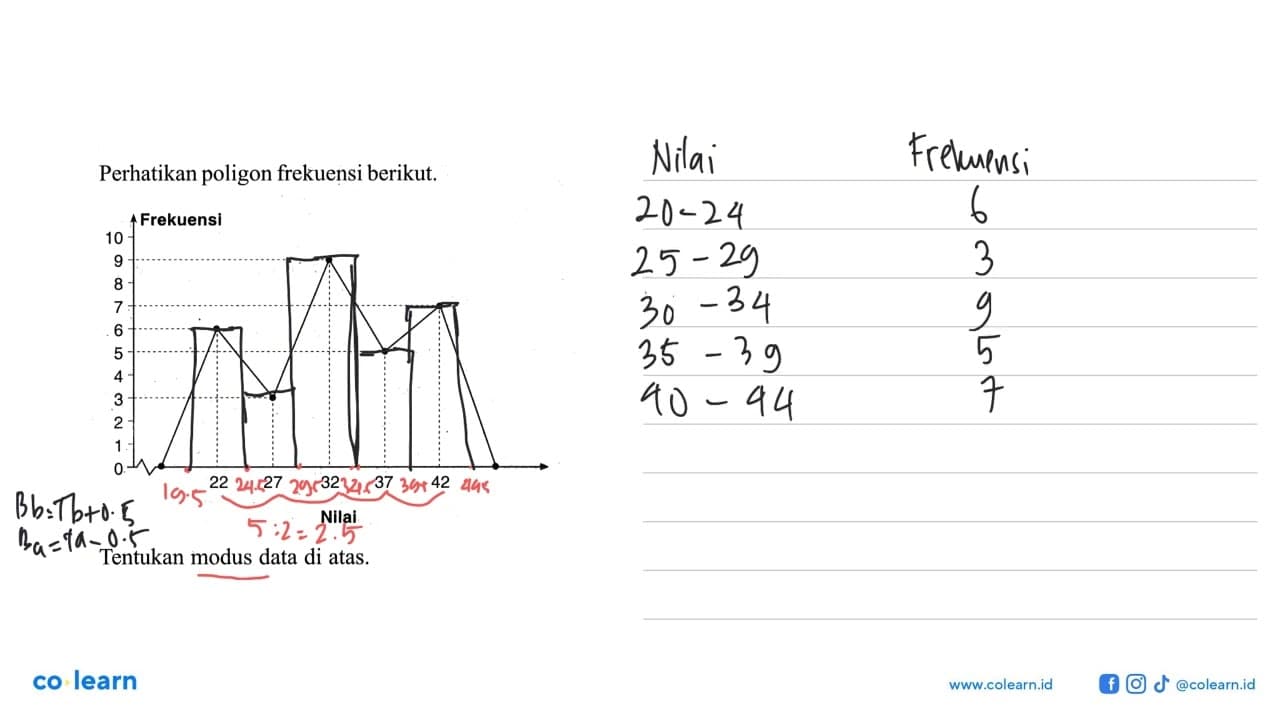 Perhatikan poligon frekuensi berikut.
Frekuensi
10
9
8
7
6
5
4
3
2
1
0
22 27 32 37 42
19.5 24.5 29.5 34.5 39.5 44.5
Nilai
5 : 2 = 2.5
Bb = Tb + 0.5
Ba = Ta - 0.5
Tentukan modus data di atas.
Nilai Frekuensi
20 - 24 6
25 - 29 3
30 - 34 9
35 - 39 5
40 - 44 7
co learn
www.colearn.id @colearn.id